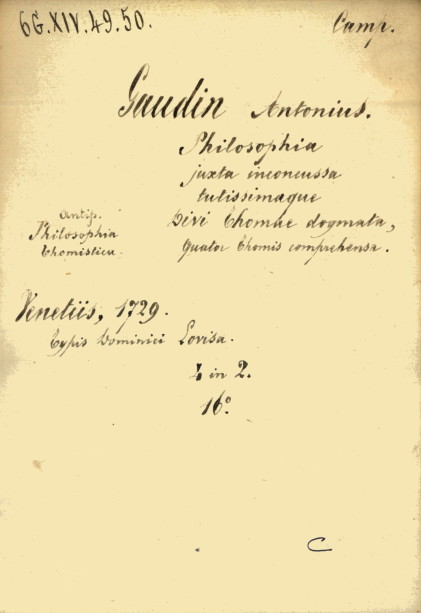 6G.XIV.49.50.
Camp.
Gaudin Antonius.
Philosophia
juxta inconcussa
tutissimaque
Divi Thomae dogmata,
quator Thomis comprehensa.
Antip.
Philosophia
Thomistica.
Venetiis, 1729.
Typis Dominici Lovisa.
4 in 2.
16º.
C